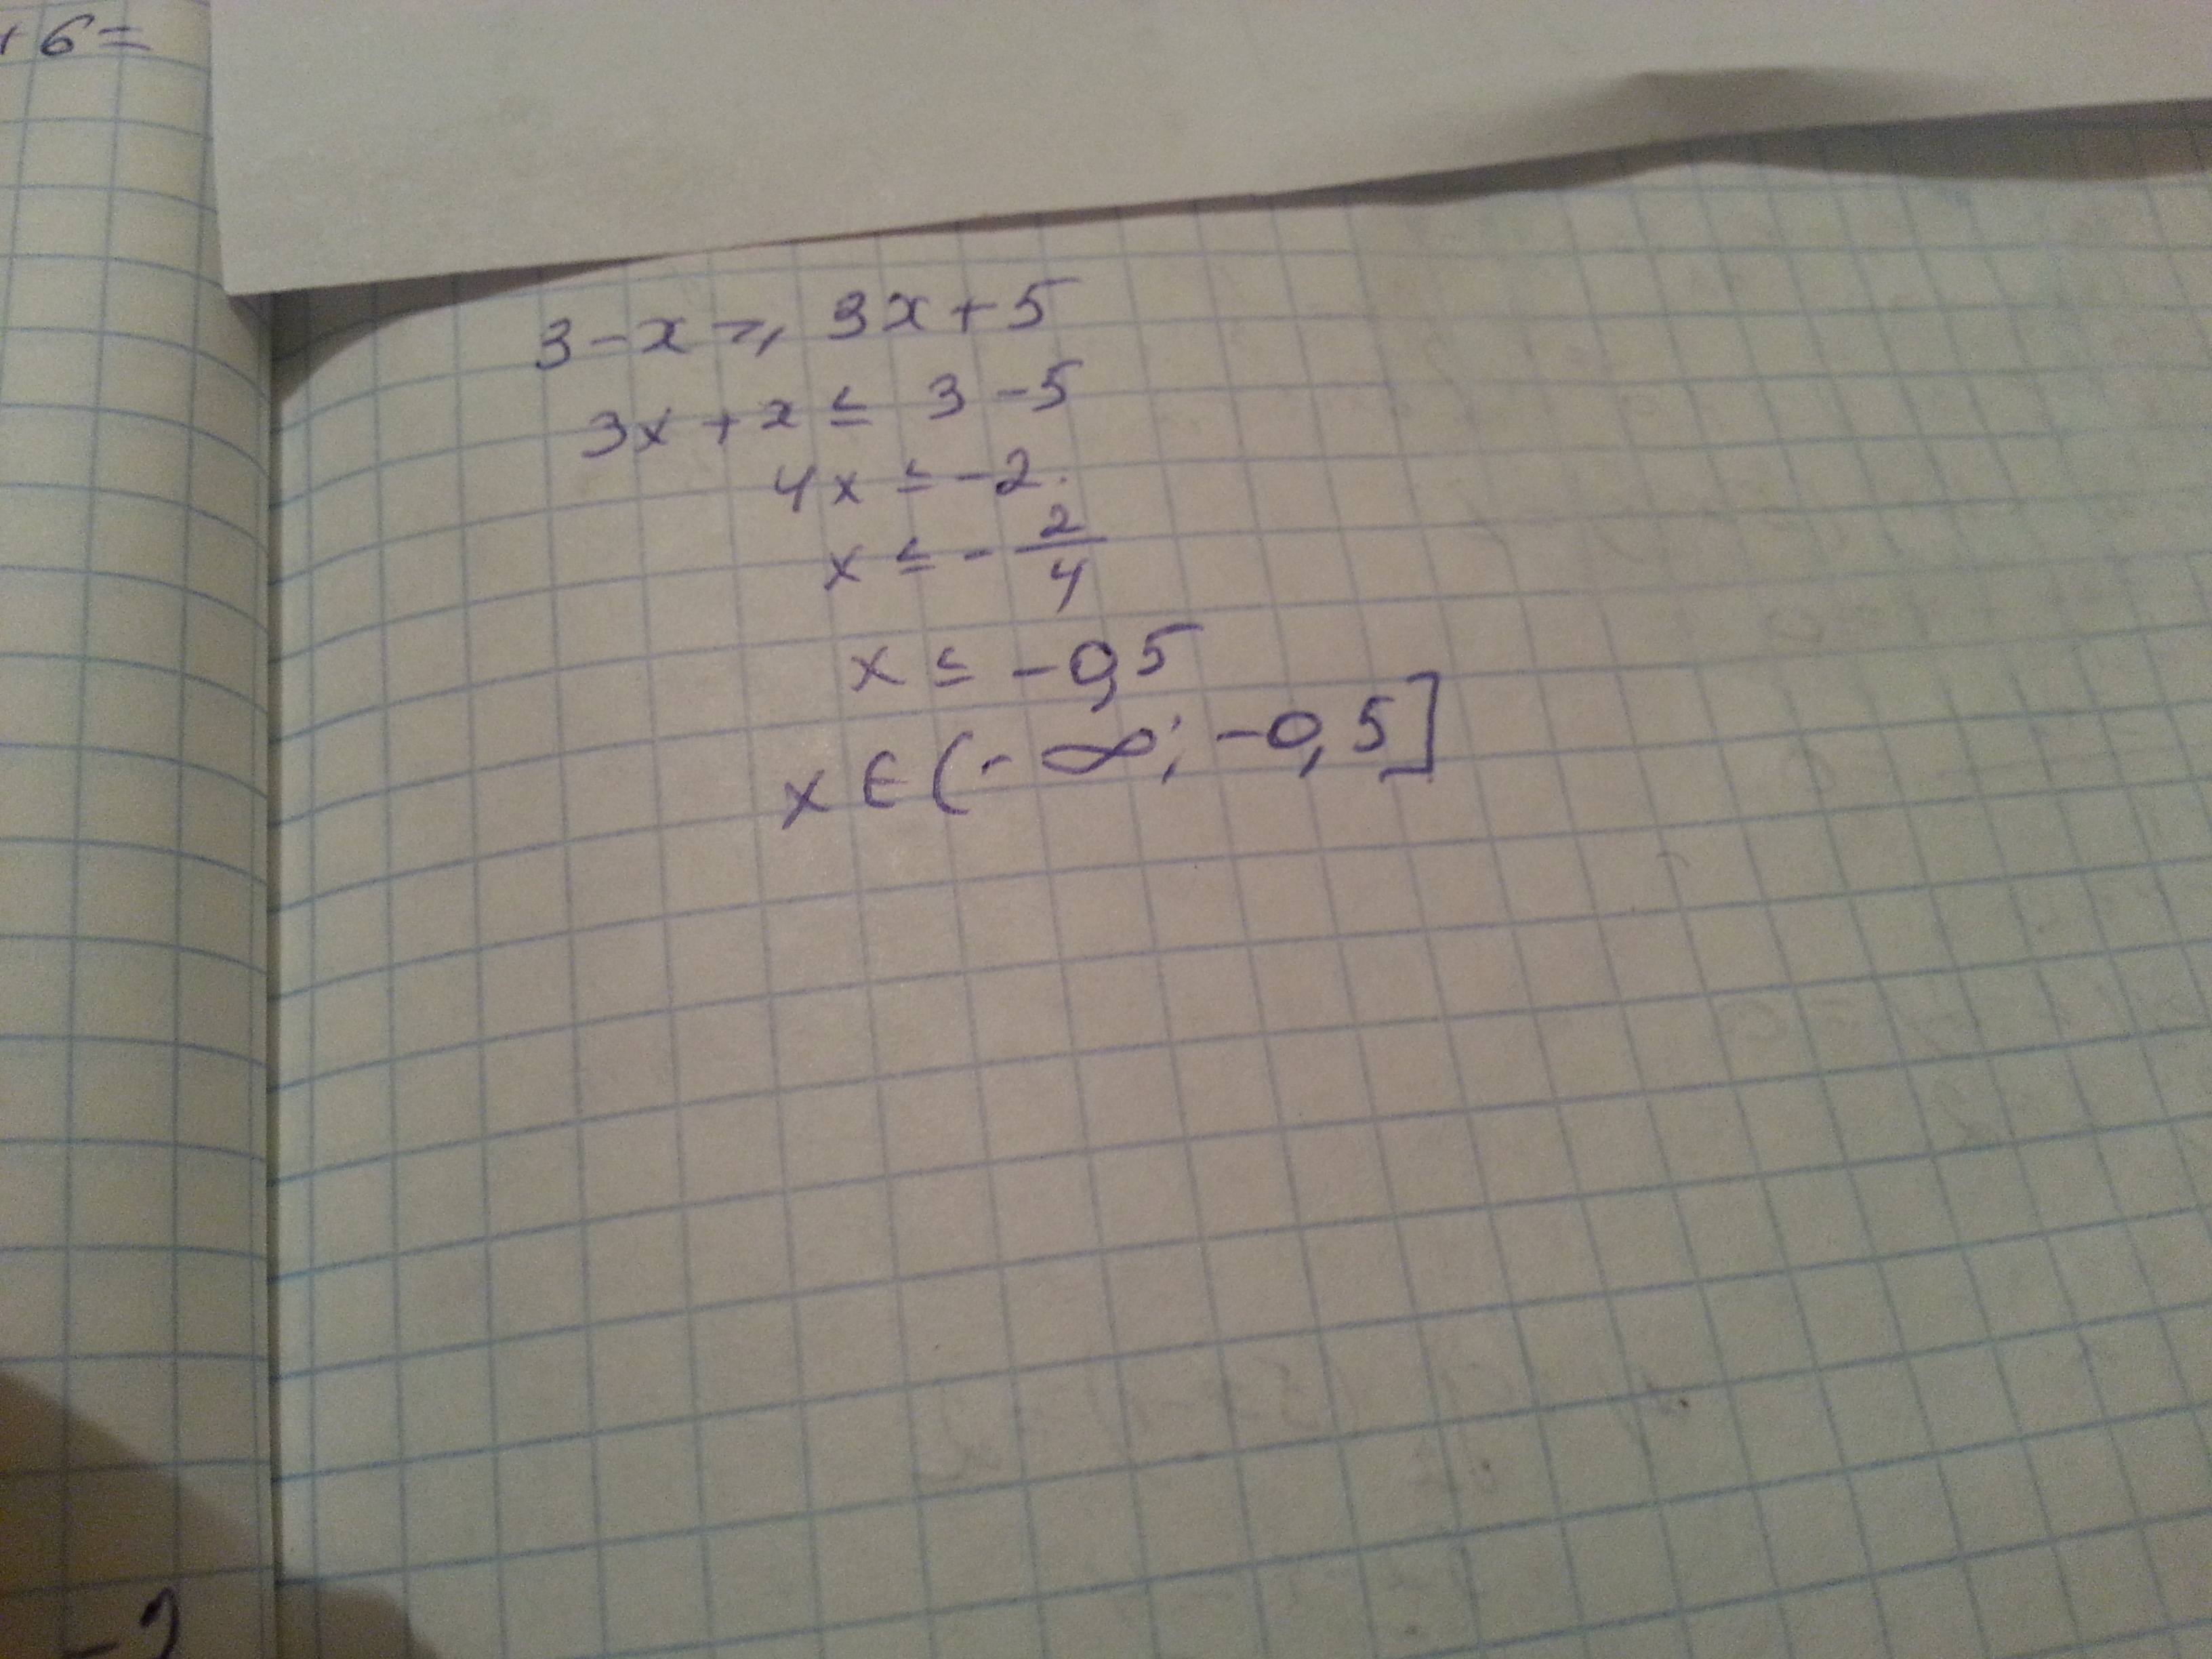 +6=
3-x ⩾ 3x+5
3x+x ≤ 3-5
4x ≤ -2
x ≤ - 2/4
x ≤ -0,5
x ∈ (-∞; -0,5]